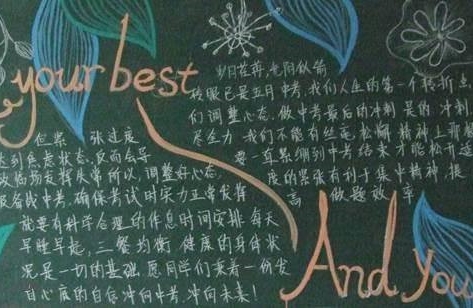 your best
岁月荏苒,光阴似箭
转眼已是五月中考,我们人生的第一个转折
们调整心态,做中考最后的冲刺 是的 冲刺
尽全力 我们不能有丝毫松懈 精神上
要一直紧绷到中考结束 才能松开
度的紧张有利于集中精神 提
高 做题效率
但累 张过度
达到焦虑状态,反而会导
致临场发挥失常 所以,调整好心态
备战中考 确保考试时实力正常发挥
就要有科学合理的作息时间安排 每天
早睡早起,三餐均衡 健康的身体状
况是一切的基础 愿同学们乘着一份发
自心底的自信 冲向中考,冲向未来!
And You